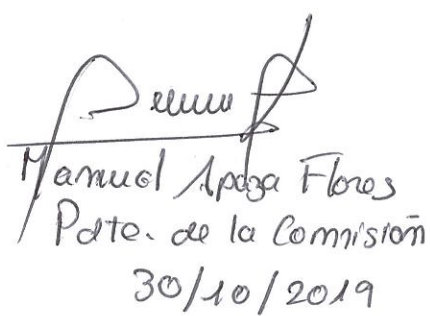 Manuel Apaza Flores
Pdte. de la Comisión
30/10/2019